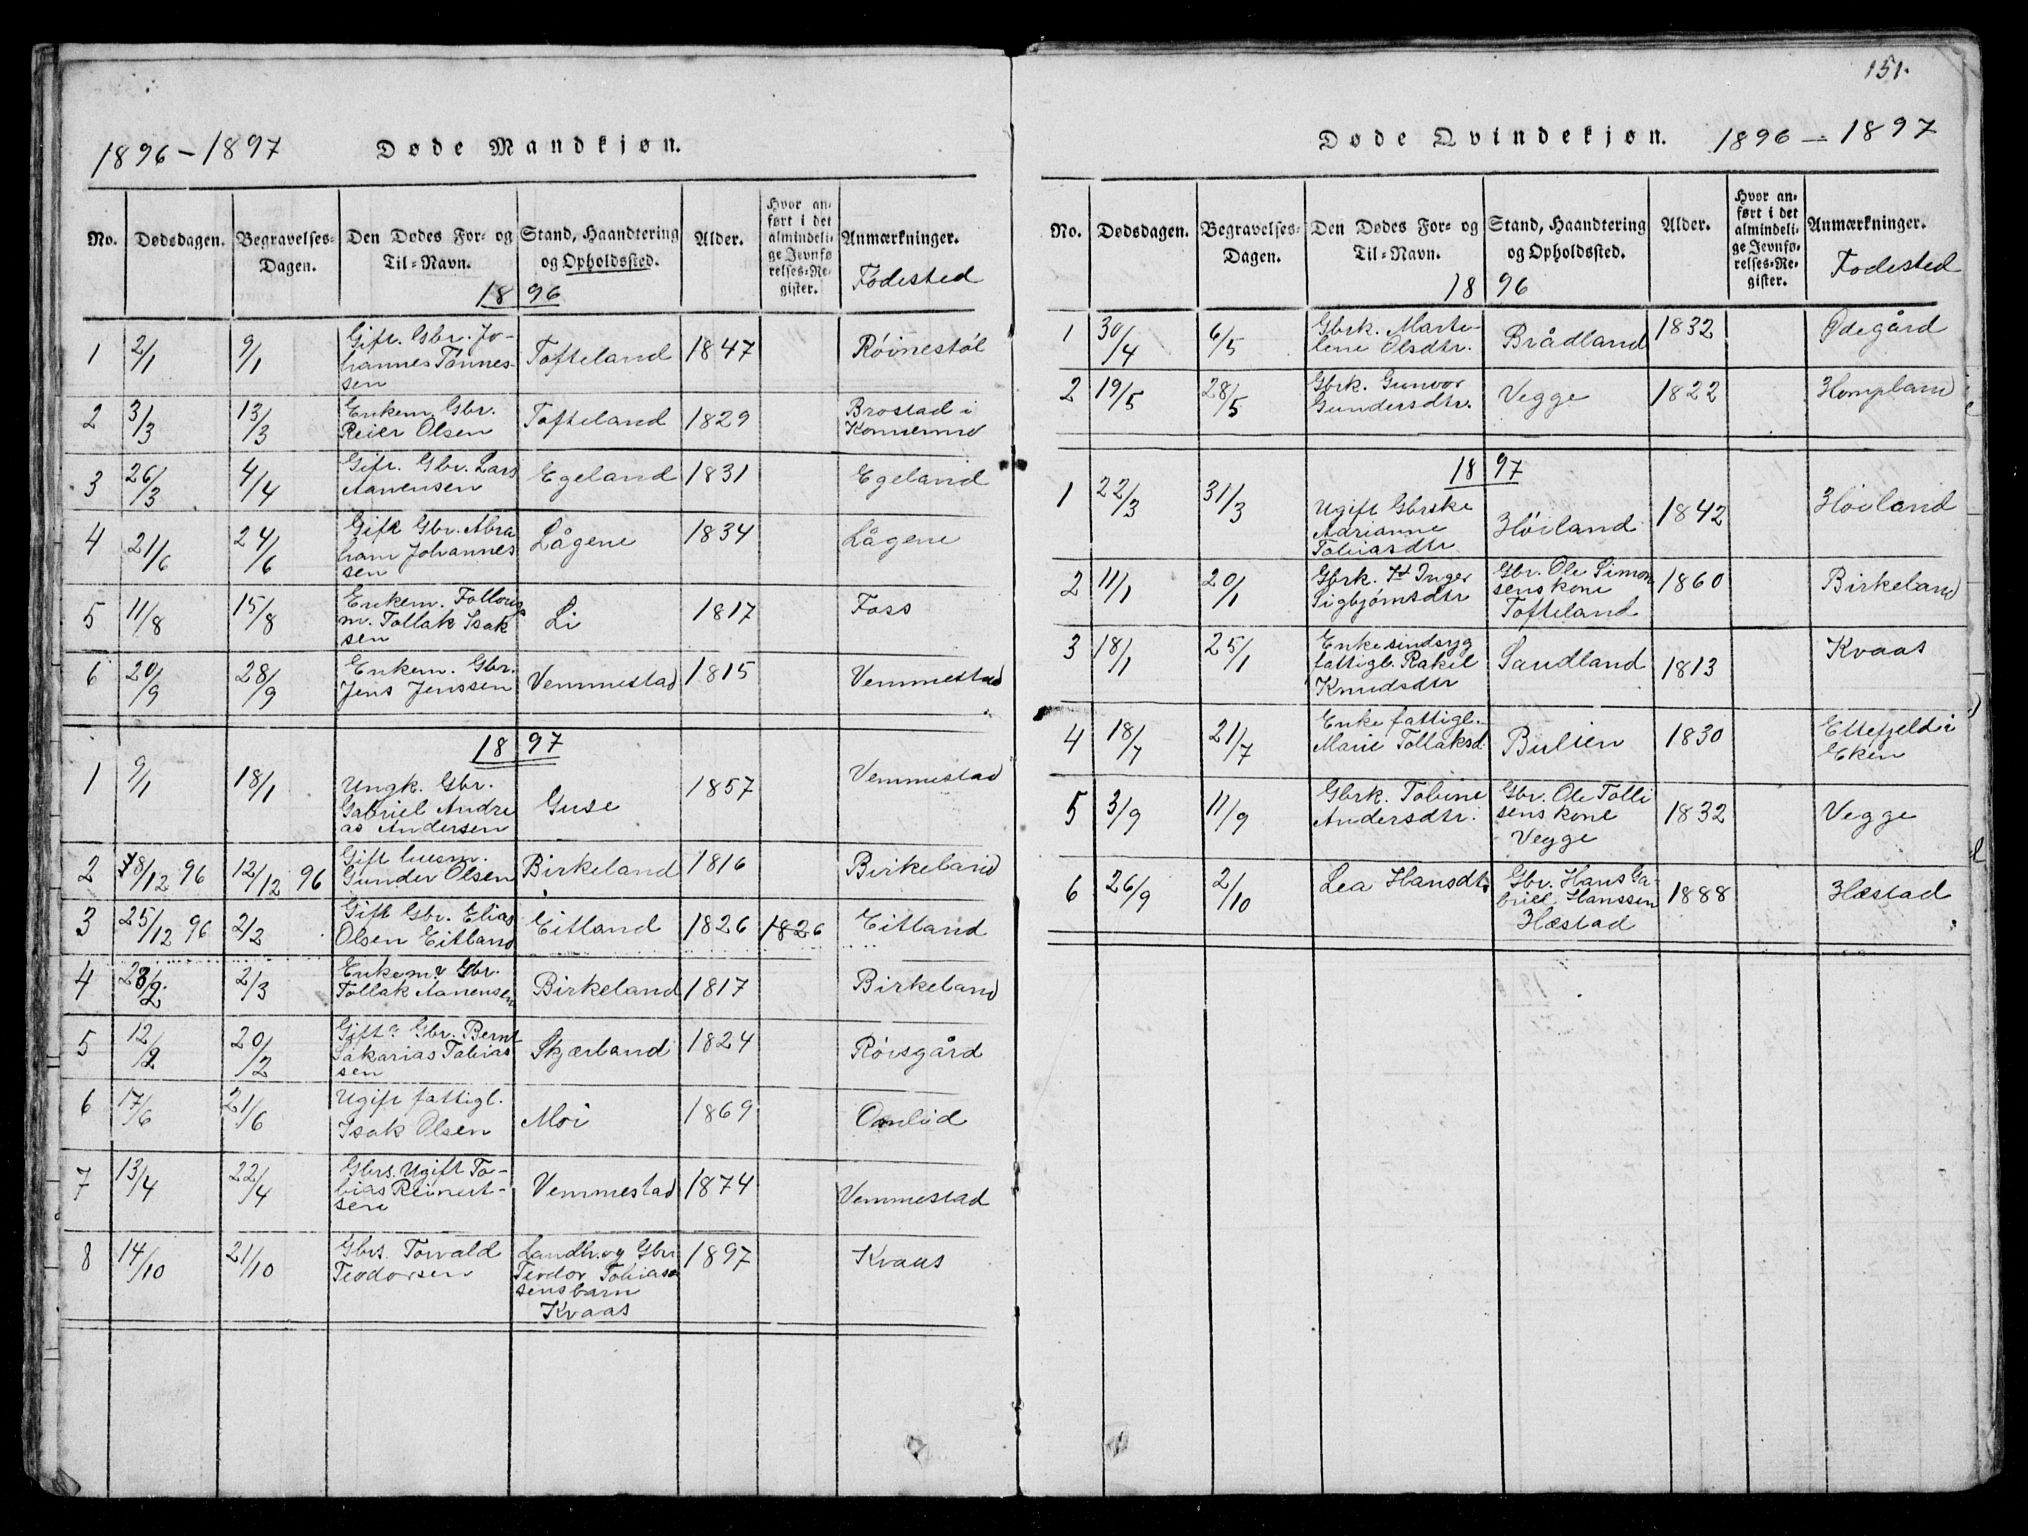 1896 - 1897
Døde Mandkjøn.
No.
Dødsdagen.
Begravelses-
Dagen.
Den Dødes For- og
Til-Navn.
Stand, Haandtering
og Opholdssted.
Alder.
Hvor an-
ført i det
almindeli-
ge Jevnfø
relses-Re-
gister.
Anmærkninger.
Fødested
1896
1 2/1 9/1 Gift. Gbr. Jo- Tofteland 1847 Røinestøl
hannes Tønnes-
sen
2 3/3 13/3 Enkem. Gbr. Tofteland 1829 Brostad i
Reier Olsen
3 26/3 4/4 Gift. Gbr. Lars Egeland 1831 Egeland
Aanensen
4 21/6 24/6 Gift Gbr. Abra Lågene 1834 Lågene
ham Johannes
sen
5 11/8 15/8 Enkem. Li 1817 Foss
m. Tollak Isak
sen
6 20/9 28/9 Enkem. Gbr. Vemmestad 1815 Vemmestad
Jens Jenssen
1897
1 9/1 18/1 Ungk. Gbr. Guse 1857 Vemmestad
Gabriel Andre
as Andersen
2 8/12 96 12/12 96 Gift Birkeland 1816 Birkeland
Gunder Olsen
3 25/12 96 2/2 Gift Gbr. Elias Eitland 1826 1826 Eitland
Olsen Eitland
4 28/2 2/3 Enkem. Gbr. Birkeland 1817 Birkeland
Tollak Aanensen
5 12/2 20/2 Gift Gbr. Bernt Skjærland 1824 Røisgård
Sakarias Tobias
sen
6 17/6 21/6 Ugift fattigl. Moi 1869 Omlid
Isak Olsen
7 13/4 22/4 Gbrs. Ugift To- Vemmestad 1874 Vemmestad
bias Reinert-
sen
8 14/10 21/10 Gbrs. Torvald Landh. og Gbr. 1897 Kvaas
Teodorsen Teodor Tobias
sens barn
Kvaas
151.
Døde Qvindekjøn.
1896 - 1897
No.
Dødsdagen.
Begravelses-
Dagen.
Den Dødes For- og
Til-Navn.
Stand, Haandtering
og Opholdssted.
Alder.
Hvor an-
ført i det
almindeli-
ge Jevnfø-
relses-Re-
gister.
Anmærkninger.
Fødested
1896
1 30/4 6/5 Gbrk. Marte- Brådland 1832 Ødegård
lene Olsdtr.
2 19/5 28/5 Gbrk. Gunvor Vegge 1822 Hompland
Gundersdtr.
1897
1 22/3 31/3 Ugift Gbrske Høiland 1842 Høiland
Adrianne
Tobiasdtr
2 11/1 20/1 Gbrk. Inger Gbr. Ole Simon 1860 Birkeland
Sigbjørnsdtr sens kone
Tofteland
3 18/1 25/1 Enke sindsyg Sandland 1813 Kvaas
fattigl. Rakel
Knudsdtr
4 18/7 21/7 Enke fattigl. Bulien 1830 Ettefjeld i
Marie Tollaksd. Eken
5 3/9 11/9 Gbrk. Tobine Gbr. Ole Tolli 1832 Vegge
Andersdtr. sens kone
Vegge
6 26/9 2/10 Lea Hansdtr Gbr. Hans Ga- 1888 Hæstad
briel Hanssen
Hæstad